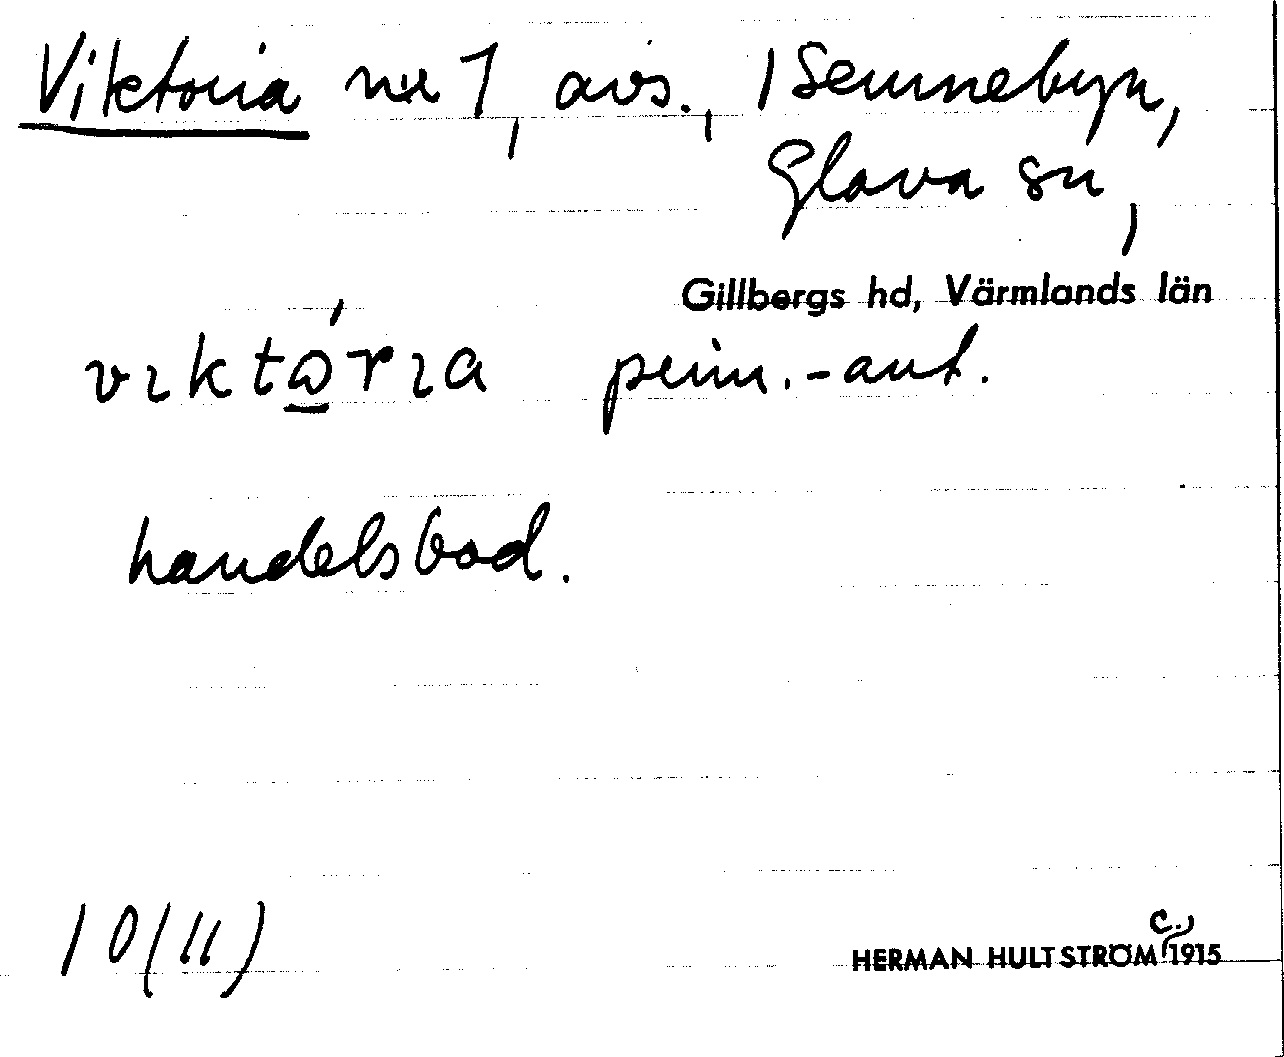 Viktoria nr 1, avs., 1 Sem Sunnebyn,
Glava sn,
Gillbergs hd, Värmlands län
vɩktώ̲rɩa prim.-ant.
handelsbod.
10(11)
HERMAN HULTSTRÖM c. 1915